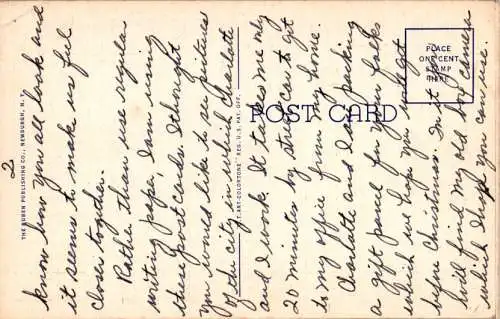 2
know how you all look and
it seems to make us feel
closer together.
Rather than use regular
writing paper, I am using
these post cards. I thought
you would like to see pictures
of the city in which Charlotte
and I work. It takes me only
20 minutes by street car to get
to my office from my home.
Charlotte and I are packing
a gift parcel for you folks
which we hope you will get
before Christmas. In it you
will find my old box camera
which I hope you can use.
THE RUBEN PUBLISHING CO., NEWBURGH, N.
"C.T. ART-COLORTONE" REG. U.S. PAT. OFF.
POST CARD
PLACE
ONE CENT
STAMP
HERE